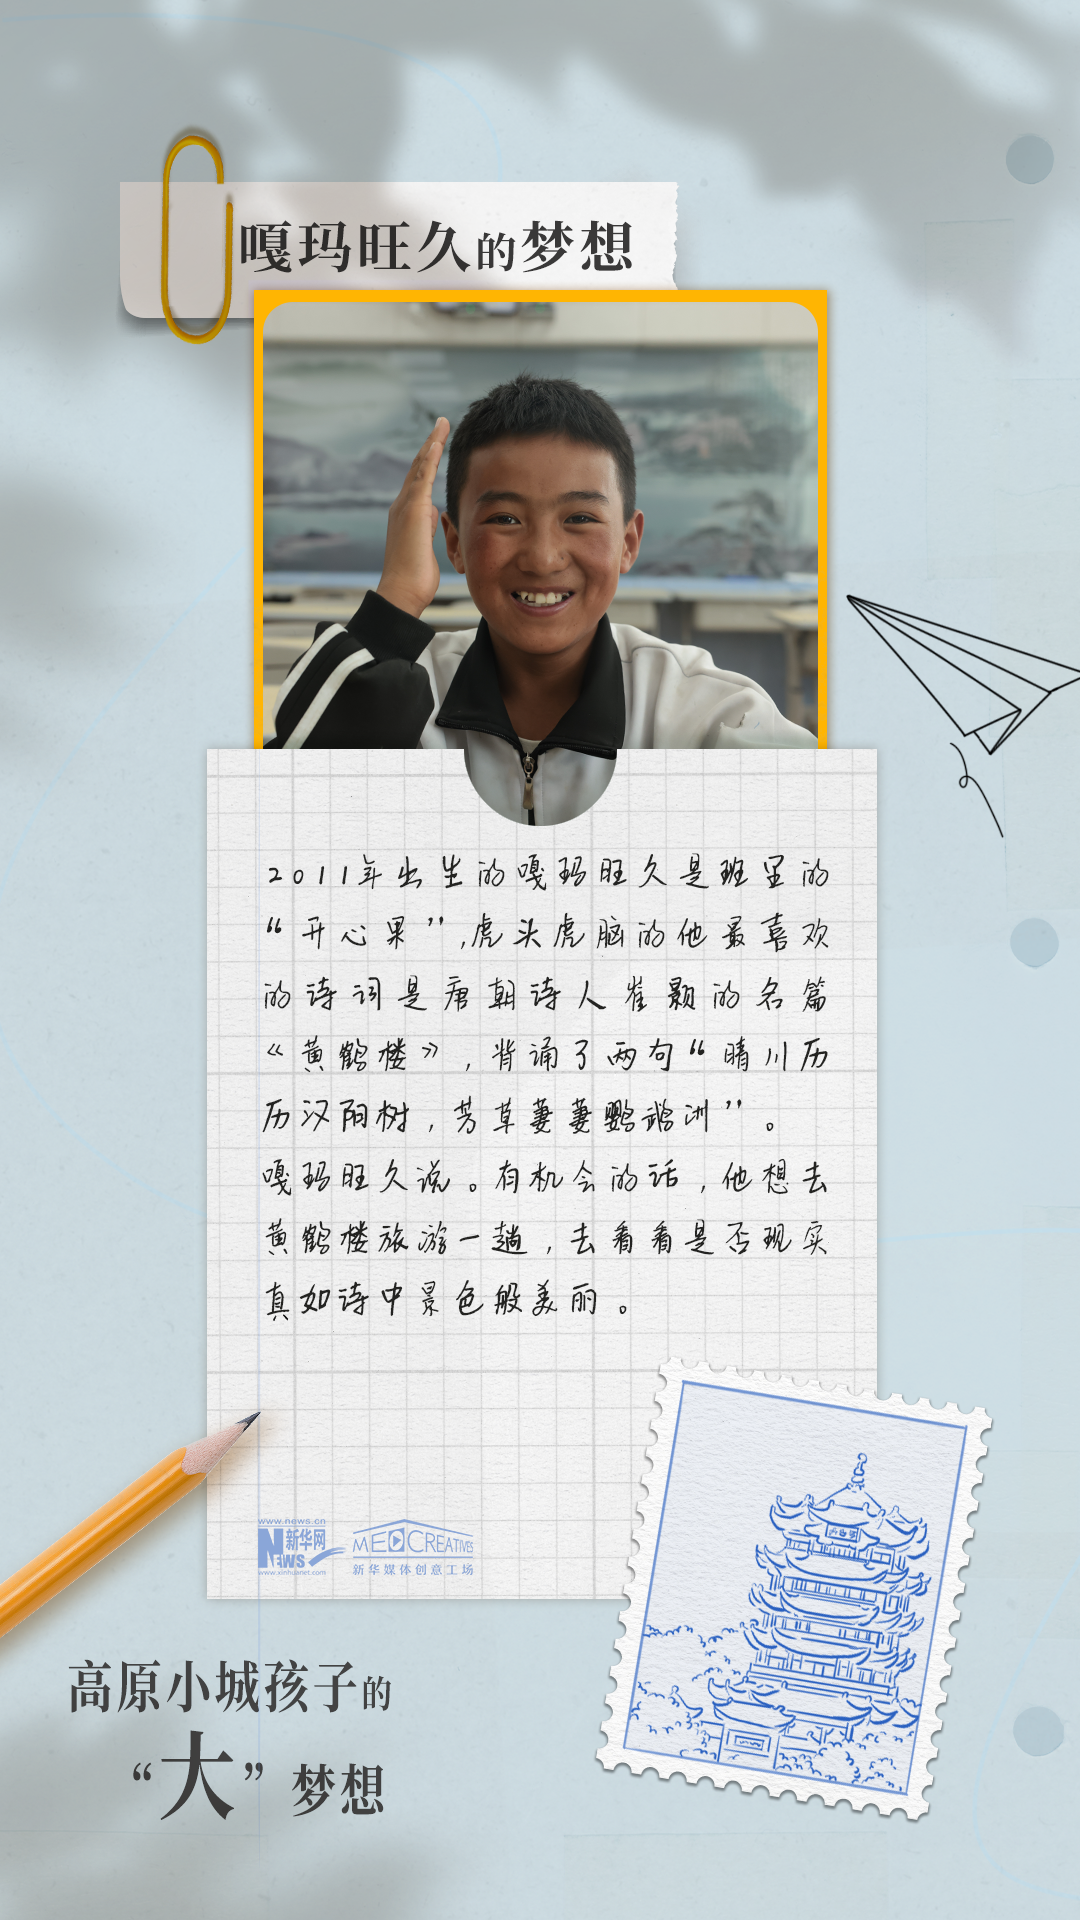 嘎玛旺久的梦想
2011年出生的嘎玛旺久是班里的
“开心果”,虎头虎脑的他最喜欢
的诗词是唐朝诗人崔颢的名篇
《黄鹤楼》，背诵了两句“晴川历
历汉阳树，芳草萋萋鹦鹉洲”。
嘎玛旺久说。有机会的话，他想去
黄鹤楼旅游一趟，去看看是否现实
真如诗中景色般美丽。
www.news.cn
新华网
NEWS
www.xinhuanet.com
MEDCREATIVES
新华媒体创意工场
高原小城孩子的
“大”梦想